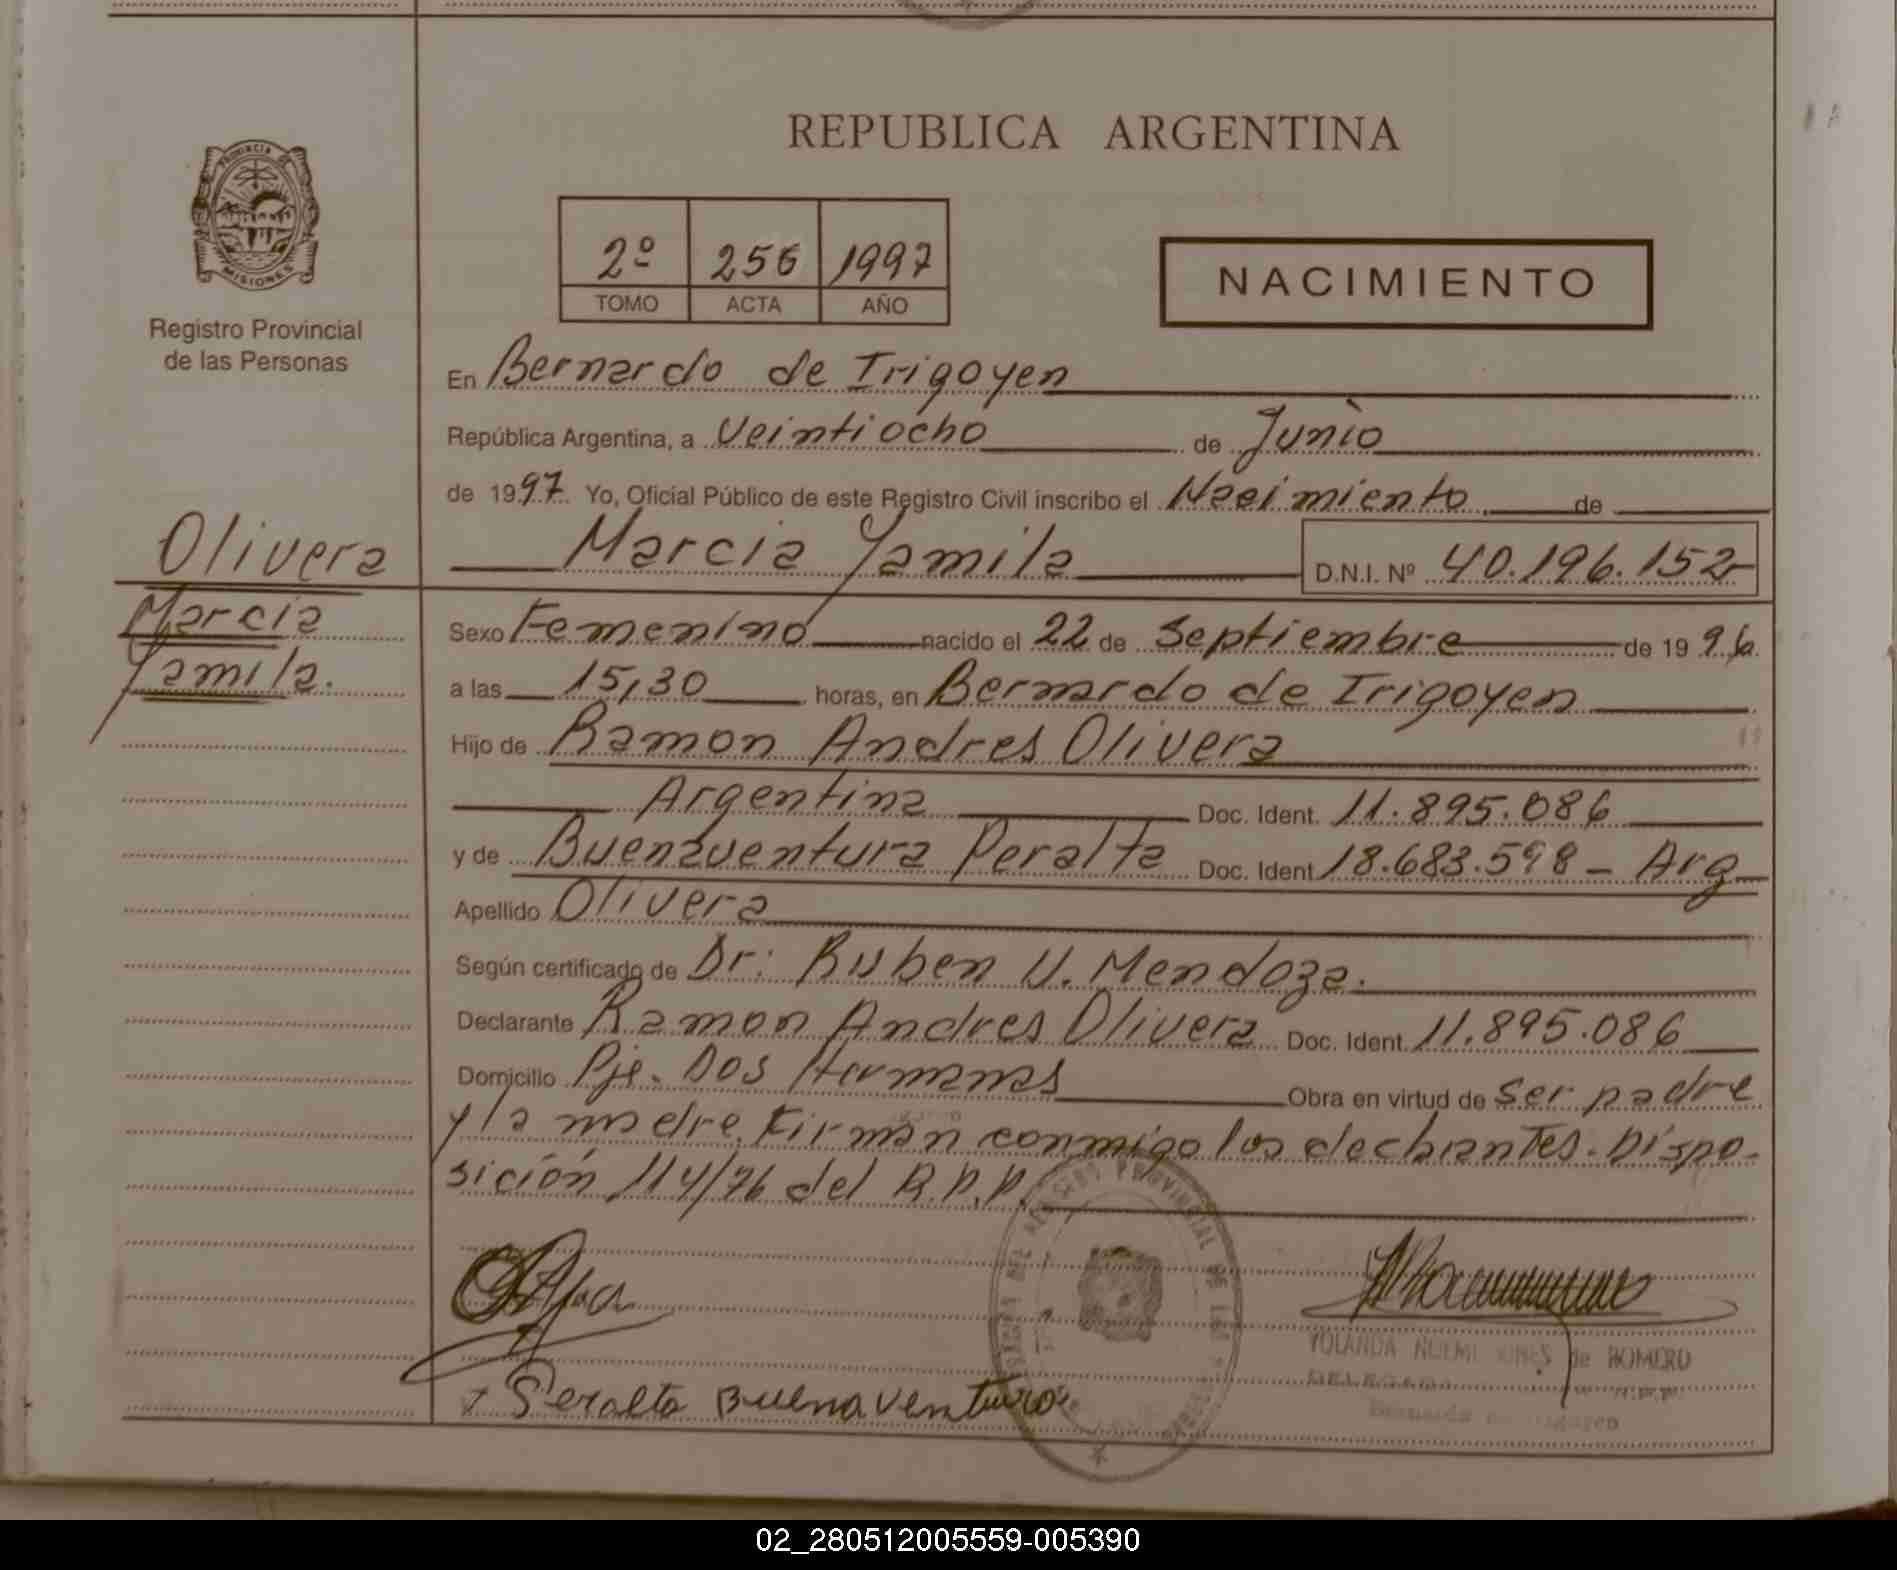 REPUBLICA ARGENTINA
PROVINCIA DE
MISIONES
Registro Provincial
de las Personas
2º 256 1997
TOMO ACTA AÑO
NACIMIENTO
En Bernardo de Irigoyen
República Argentina, a Veintiocho de Junio
de 1997 Yo, Oficial Público de este Registro Civil inscribo el Nacimiento de
Marcia Yamila D.N.I. Nº 40.196.152
Olivera
Marcia
Yamila.
Sexo Femenino nacido el 22 de Septiembre de 1996
a las 15,30 horas, en Bernardo de Irigoyen
Hijo de Ramon Andres Olivera
Argentina Doc. Ident. 11.895.086
y de Buenaventura Peralta Doc. Ident 18.683.598 - Arg
Apellido Olivera
Según certificado de Dr: Ruben U. Mendoza.
Declarante Ramon Andres Olivera Doc. Ident. 11.895.086
Domicilio Pje. Dos Hermanas Obra en virtud de ser padre
y la madre. Firman conmigo los declarantes. Dispo-
sición 114/76 del R.P.P.
REGISTRO PROVINCIAL DE LAS
YOLANDA NOEMI de ROMERO
DELEGADA
Peralta Buenaventura
02_280512005559-005390